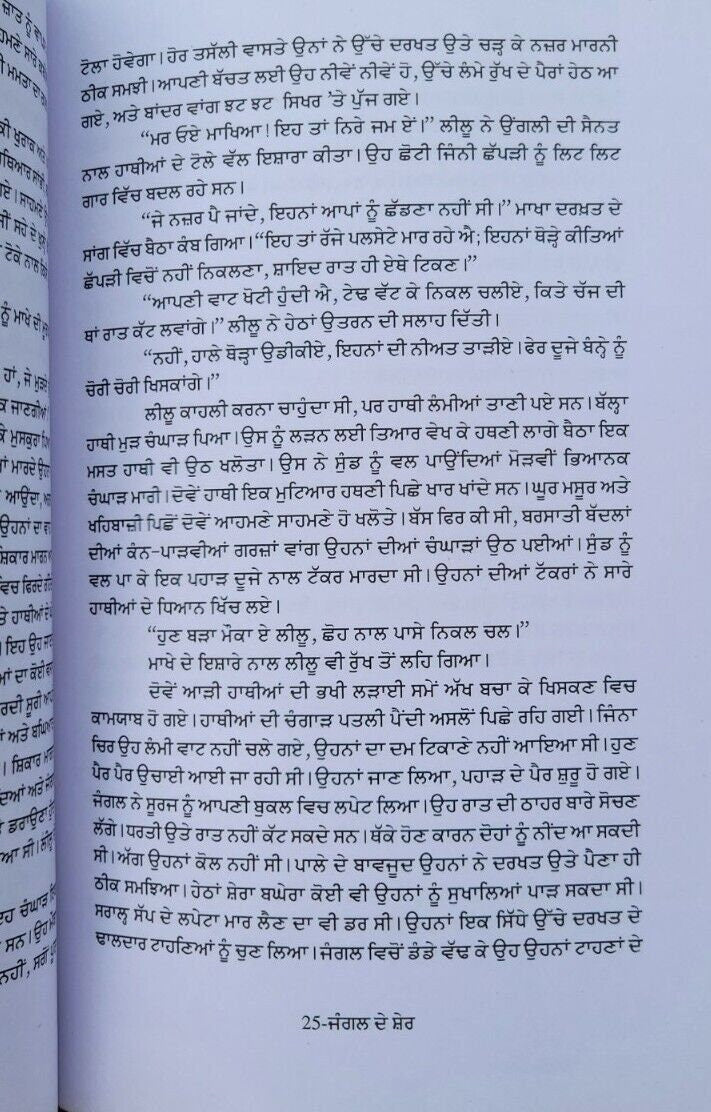 ਟੋਲਾ ਹੋਵੇਗਾ। ਹੋਰ ਤਸੱਲੀ ਵਾਸਤੇ ਉਨਾਂ ਨੇ ਉੱਚੇ ਦਰਖਤ ਉਤੇ ਚੜ੍ਹ ਕੇ ਨਜ਼ਰ ਮਾਰਨੀ
ਠੀਕ ਸਮਝੀ। ਆਪਣੀ ਬੱਚਤ ਲਈ ਉਹ ਨੀਵੇਂ ਨੀਵੇਂ ਹੋ, ਉੱਚੇ ਲੰਮੇ ਰੁੱਖ ਦੇ ਪੈਰਾਂ ਹੇਠ ਆ
ਗਏ, ਅਤੇ ਬਾਂਦਰ ਵਾਂਗ ਝਟ ਝਟ ਸਿਖਰ 'ਤੇ ਪੁੱਜ ਗਏ।
“ਮਰ ਓਏ ਮਾਖਿਆ! ਇਹ ਤਾਂ ਨਿਰੇ ਜਮ ਏਂ।” ਲੀਲੂ ਨੇ ਉਂਗਲੀ ਦੀ ਸੈਨਤ
ਨਾਲ ਹਾਥੀਆਂ ਦੇ ਟੋਲੇ ਵੱਲ ਇਸ਼ਾਰਾ ਕੀਤਾ। ਉਹ ਛੋਟੀ ਜਿੰਨੀ ਛੱਪੜੀ ਨੂੰ ਲਿਟ ਲਿਟ
ਗਾਰ ਵਿੱਚ ਬਦਲ ਰਹੇ ਸਨ।
“ਜੇ ਨਜ਼ਰ ਪੈ ਜਾਂਦੇ, ਇਹਨਾਂ ਆਪਾਂ ਨੂੰ ਛੱਡਣਾ ਨਹੀਂ ਸੀ।” ਮਾਖਾ ਦਰਖ਼ਤ ਦੇ
ਸਾਂਗ ਵਿੱਚ ਬੈਠਾ ਕੰਬ ਗਿਆ। “ਇਹ ਤਾਂ ਰੱਜੇ ਪਲਸੇਟੇ ਮਾਰ ਰਹੇ ਐ; ਇਹਨਾਂ ਥੋੜ੍ਹੇ ਕੀਤਿਆਂ
ਛੱਪੜੀ ਵਿਚੋਂ ਨਹੀਂ ਨਿਕਲਣਾ, ਸ਼ਾਇਦ ਰਾਤ ਹੀ ਏਥੇ ਟਿਕਣ।”
“ਆਪਣੀ ਵਾਟ ਖੋਟੀ ਹੁੰਦੀ ਐ, ਟੇਢ ਵੱਟ ਕੇ ਨਿਕਲ ਚਲੀਏ, ਕਿਤੇ ਚੱਜ ਦੀ
ਥਾਂ ਰਾਤ ਕੱਟ ਲਵਾਂਗੇ।” ਲੀਲੂ ਨੇ ਹੇਠਾਂ ਉਤਰਨ ਦੀ ਸਲਾਹ ਦਿੱਤੀ।
“ਨਹੀਂ, ਹਾਲੇ ਥੋੜ੍ਹਾ ਉਡੀਕੀਏ, ਇਹਨਾਂ ਦੀ ਨੀਅਤ ਤਾੜੀਏ। ਫੇਰ ਦੂਜੇ ਬੰਨ੍ਹੇ ਨੂੰ
ਚੋਰੀ ਚੋਰੀ ਖਿਸਕਾਂਗੇ।”
ਲੀਲੂ ਕਾਹਲੀ ਕਰਨਾ ਚਾਹੁੰਦਾ ਸੀ, ਪਰ ਹਾਥੀ ਲੰਮੀਆਂ ਤਾਣੀ ਪਏ ਸਨ। ਬੱਲ੍ਹਾ
ਹਾਥੀ ਮੁੜ ਚੰਘਾੜ ਪਿਆ। ਉਸ ਨੂੰ ਲੜਨ ਲਈ ਤਿਆਰ ਵੇਖ ਕੇ ਹਥਣੀ ਲਾਗੇ ਬੈਠਾ ਇਕ
ਮਸਤ ਹਾਥੀ ਵੀ ਉਠ ਖਲੋਤਾ। ਉਸ ਨੇ ਸੁੰਡ ਨੂੰ ਵਲ ਪਾਉਂਦਿਆਂ ਮੋੜਵੀਂ ਭਿਆਨਕ
ਚੰਘਾੜ ਮਾਰੀ। ਦੋਵੇਂ ਹਾਥੀ ਇਕ ਮੁਟਿਆਰ ਹਥਣੀ ਪਿਛੇ ਖਾਰ ਖਾਂਦੇ ਸਨ। ਘੂਰ ਮਸੂਰ ਅਤੇ
ਖਹਿਬਾਜ਼ੀ ਪਿਛੋਂ ਦੋਵੇਂ ਆਹਮਣੇ ਸਾਹਮਣੇ ਹੋ ਖਲੋਤੇ। ਬੱਸ ਫਿਰ ਕੀ ਸੀ, ਬਰਸਾਤੀ ਬੱਦਲਾਂ
ਦੀਆਂ ਕੰਨ-ਪਾੜਵੀਆਂ ਗਰਜ਼ਾਂ ਵਾਂਗ ਉਹਨਾਂ ਦੀਆਂ ਚੰਘਾੜਾਂ ਉਠ ਪਈਆਂ। ਸੁੰਡ ਨੂੰ
ਵਲ ਪਾ ਕੇ ਇਕ ਪਹਾੜ ਦੂਜੇ ਨਾਲ ਟੱਕਰ ਮਾਰਦਾ ਸੀ। ਉਹਨਾਂ ਦੀਆਂ ਟੱਕਰਾਂ ਨੇ ਸਾਰੇ
ਹਾਥੀਆਂ ਦੇ ਧਿਆਨ ਖਿੱਚ ਲਏ।
“ਹੁਣ ਬੜਾ ਮੌਕਾ ਏ ਲੀਲੂ, ਛੋਹ ਨਾਲ ਪਾਸੇ ਨਿਕਲ ਚਲ।”
ਮਾਖੇ ਦੇ ਇਸ਼ਾਰੇ ਨਾਲ ਲੀਲੂ ਵੀ ਰੁੱਖ ਤੋਂ ਲਹਿ ਗਿਆ।
ਦੋਵੇਂ ਆੜੀ ਹਾਥੀਆਂ ਦੀ ਭਖੀ ਲੜਾਈ ਸਮੇਂ ਅੱਖ ਬਚਾ ਕੇ ਖਿਸਕਣ ਵਿਚ
ਕਾਮਯਾਬ ਹੋ ਗਏ। ਹਾਥੀਆਂ ਦੀ ਚੰਗਾੜ ਪਤਲੀ ਪੈਂਦੀ ਅਸਲੋਂ ਪਿਛੇ ਰਹਿ ਗਈ। ਜਿੰਨਾ
ਚਿਰ ਉਹ ਲੰਮੀ ਵਾਟ ਨਹੀਂ ਚਲੇ ਗਏ, ਉਹਨਾਂ ਦਾ ਦਮ ਟਿਕਾਣੇ ਨਹੀਂ ਆਇਆ ਸੀ। ਹੁਣ
ਪੈਰ ਪੈਰ ਉਚਾਈ ਆਈ ਜਾ ਰਹੀ ਸੀ। ਉਹਨਾਂ ਜਾਣ ਲਿਆ, ਪਹਾੜ ਦੇ ਪੈਰ ਸ਼ੁਰੂ ਹੋ ਗਏ।
ਜੰਗਲ ਨੇ ਸੂਰਜ ਨੂੰ ਆਪਣੀ ਬੁਕਲ ਵਿਚ ਲਪੇਟ ਲਿਆ। ਉਹ ਰਾਤ ਦੀ ਠਾਹਰ ਬਾਰੇ ਸੋਚਣ
ਲੱਗੇ। ਧਰਤੀ ਉਤੇ ਰਾਤ ਨਹੀਂ ਕੱਟ ਸਕਦੇ ਸਨ। ਥੱਕੇ ਹੋਣ ਕਾਰਨ ਦੋਹਾਂ ਨੂੰ ਨੀਂਦ ਆ ਸਕਦੀ
ਸੀ। ਅੱਗ ਉਹਨਾਂ ਕੋਲ ਨਹੀਂ ਸੀ। ਪਾਲੇ ਦੇ ਬਾਵਜੂਦ ਉਹਨਾਂ ਨੇ ਦਰਖਤ ਉਤੇ ਪੈਣਾ ਹੀ
ਠੀਕ ਸਮਝਿਆ। ਹੇਠਾਂ ਸ਼ੇਰਾ ਬਘੇਰਾ ਕੋਈ ਵੀ ਉਹਨਾਂ ਨੂੰ ਸੁਖਾਲਿਆਂ ਪਾੜ ਸਕਦਾ ਸੀ।
ਸਰਾਲ੍ਹ ਸੱਪ ਦੇ ਲਪੇਟਾ ਮਾਰ ਲੈਣ ਦਾ ਵੀ ਡਰ ਸੀ। ਉਹਨਾਂ ਇਕ ਸਿੱਧੇ ਉੱਚੇ ਦਰਖਤ ਦੇ
ਢਾਲਦਾਰ ਟਾਹਣਿਆਂ ਨੂੰ ਚੁਣ ਲਿਆ। ਜੰਗਲ ਵਿਚੋਂ ਡੰਡੇ ਵੱਢ ਕੇ ਉਹ ਉਹਨਾਂ ਟਾਹਣਾਂ ਦੇ
25-ਜੰਗਲ ਦੇ ਸ਼ੇਰ